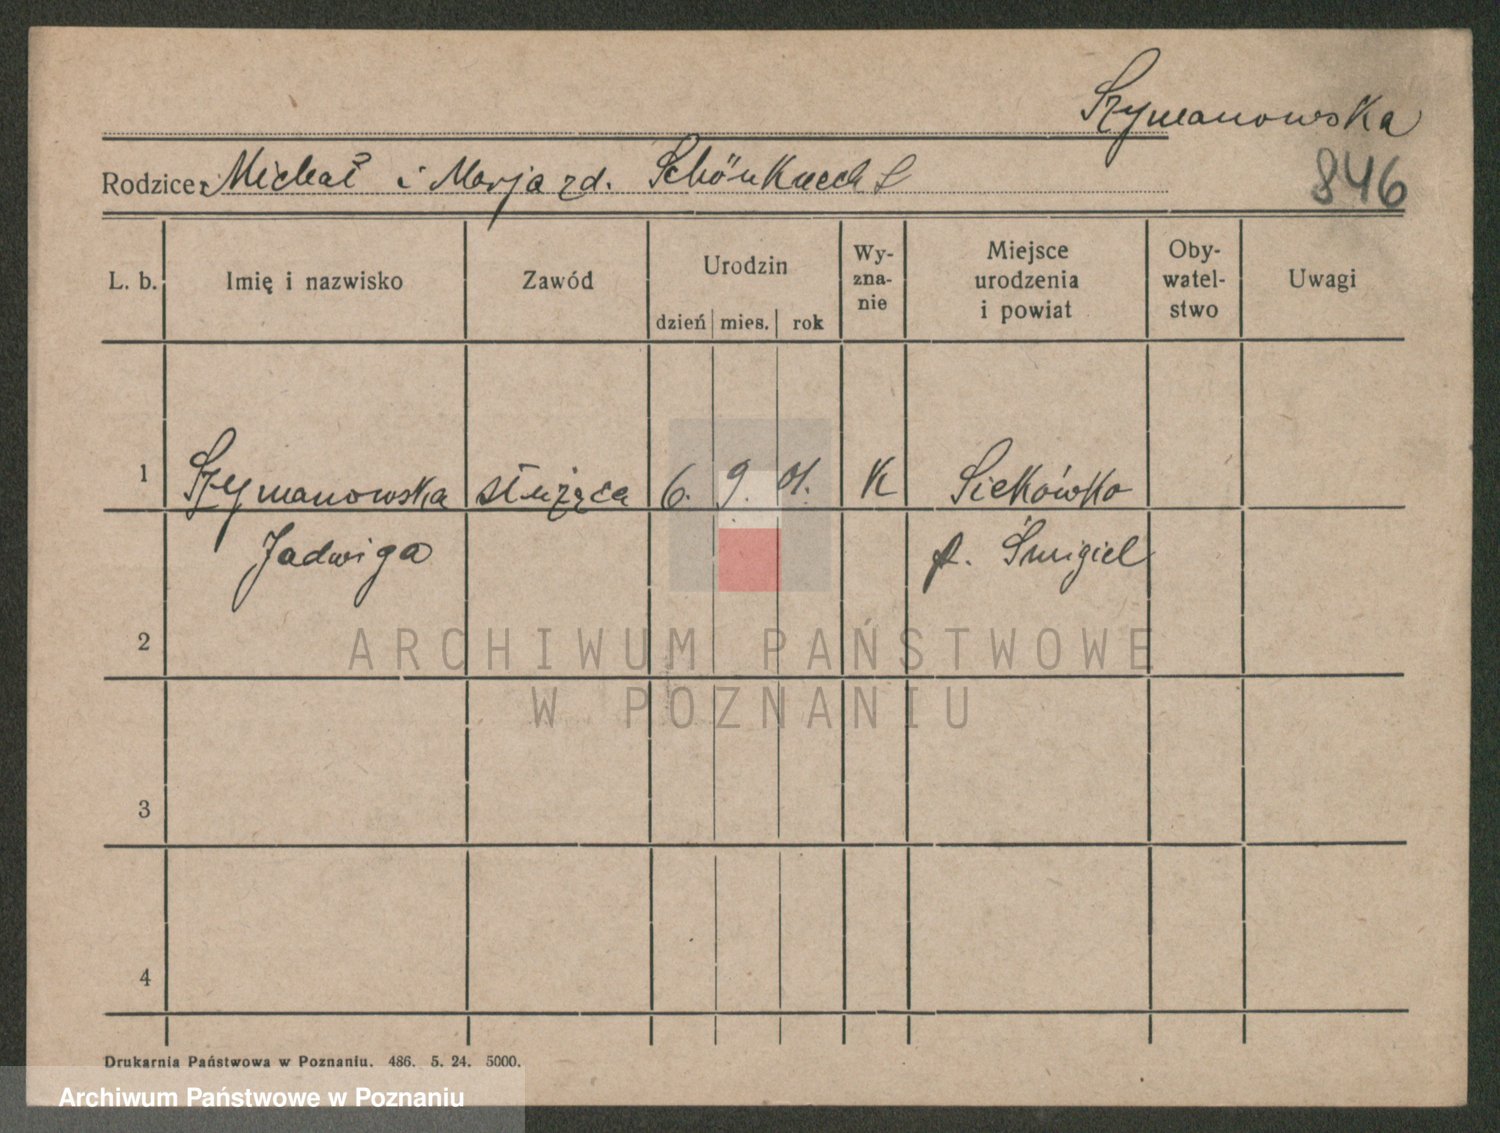 Szymanowska
Rodzice: Michał i Marja zd. Schönknecht
846
L. b. Imię i nazwisko Zawód Urodzin dzień mies. rok Wy-zna-nie Miejsce urodzenia i powiat Oby-watel-stwo Uwagi
1 Szymanowska służąca 6. 9. 01. K Siekówko
Jadwiga p. Śmigiel
2
ARCHIWUM PAŃSTWOWE
W POZNANIU
3
4
Drukarnia Państwowa w Poznaniu. 486. 5. 24. 5000.
Archiwum Państwowe w Poznaniu